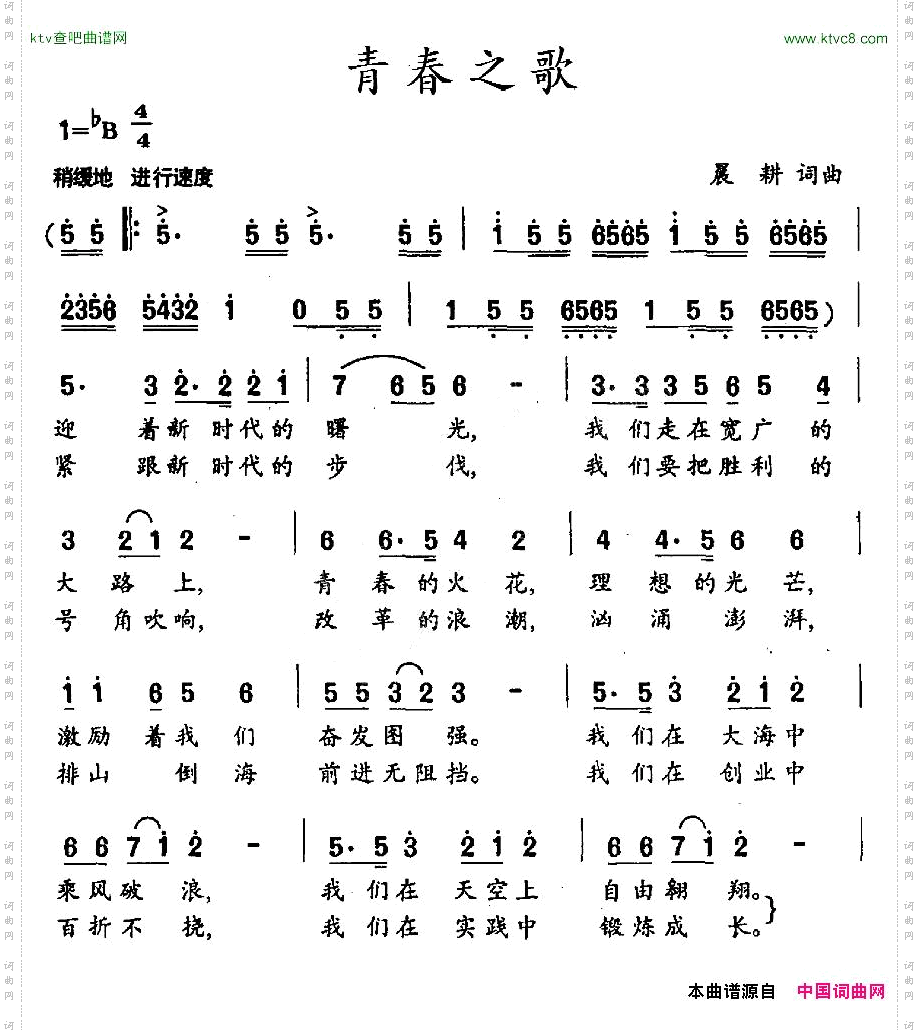 ktv查吧曲谱网 www.ktvc8.com
青春之歌
1=♭B 4/4
稍缓地 进行速度 晨 耕 词曲
(5 5 ‖: 5· 5 5 5· 5 5 | 1 5 5 6565 1 5 5 6565 |
2356 5432 1 0 5 5 | 1 5 5 6565 1 5 5 6565) |
5· 3 2· 2 2 1 | 7 6 5 6 - | 3· 3 3 5 6 5 4 |
迎 着新 时代的 曙 光, 我 们走在宽广的
紧 跟新 时代的 步 伐, 我 们要把胜利的
3 2 1 2 - | 6 6· 5 4 2 | 4 4· 5 6 6 |
大 路 上, 青 春的火花, 理 想的光芒,
号 角吹响, 改 革的浪潮, 汹 涌 澎 湃,
1 1 6 5 6 | 5 5 3 2 3 - | 5· 5 3 2 1 2 |
激励 着我 们 奋发图 强。 我 们在 大海中
排山 倒 海 前进无阻挡。 我 们在 创业中
6 6 7 1 2 - | 5· 5 3 2 1 2 | 6 6 7 1 2 - |
乘风破 浪, 我 们在 天空上 自由翱 翔。
百折不 挠, 我 们在 实践中 锻炼成 长。}
本曲谱源自 中国词曲网